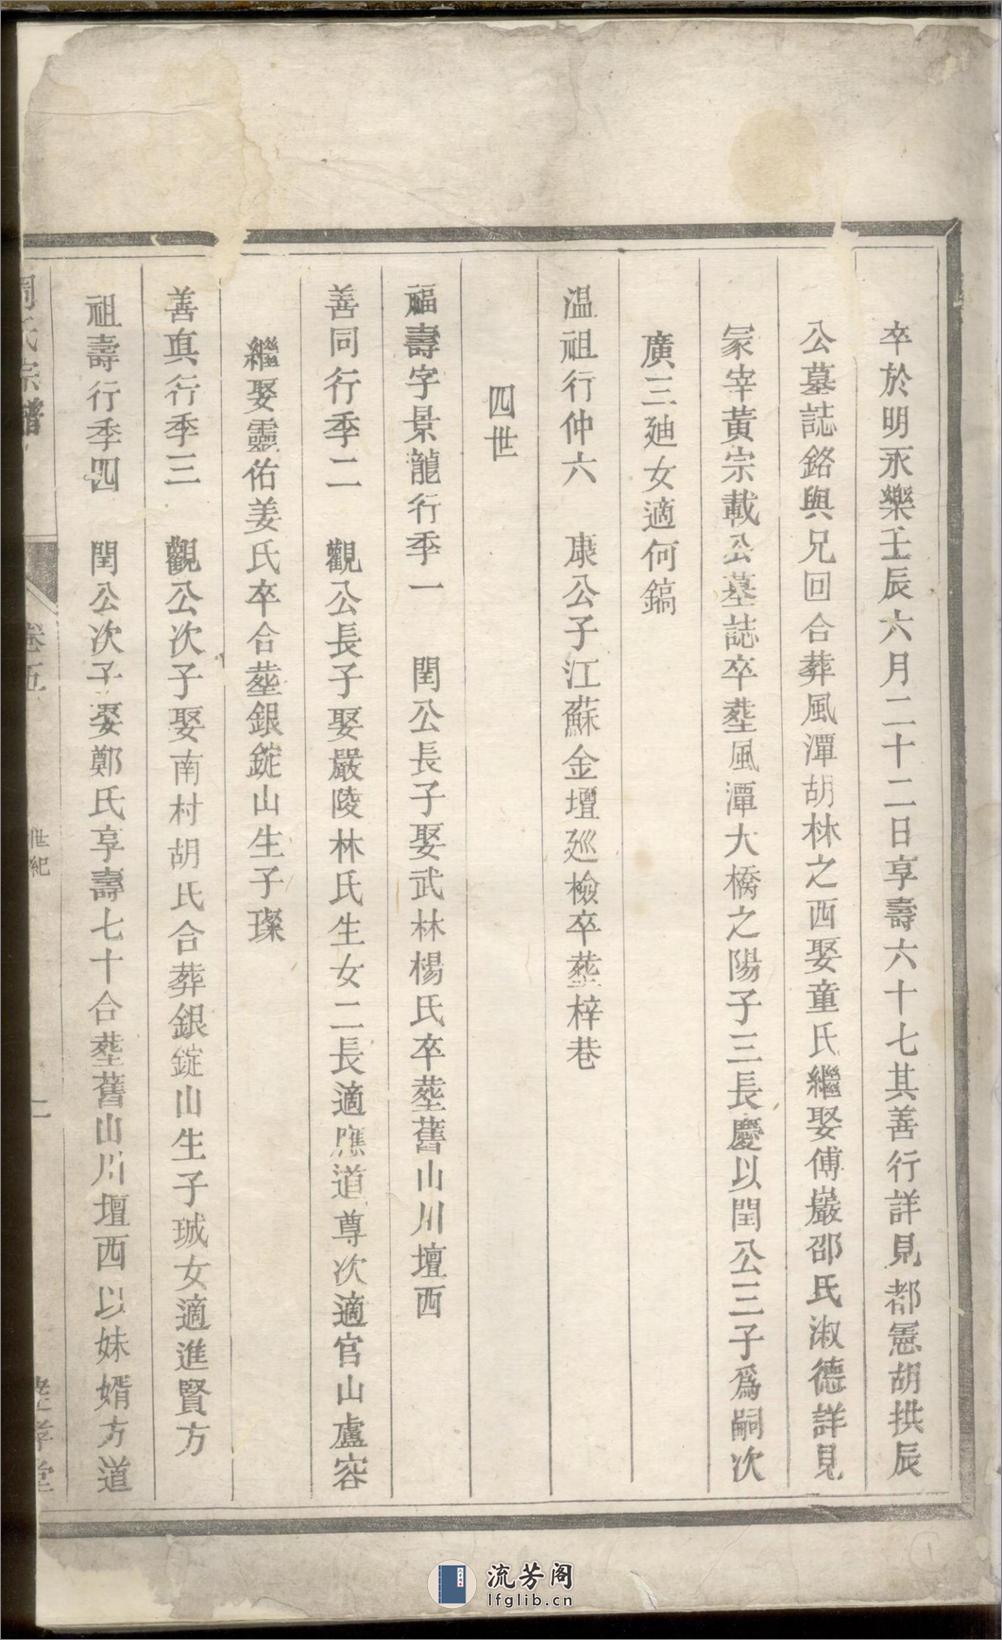 卒於明永樂壬辰六月二十二日享壽六十七其善行詳見都憲胡拱辰
公墓誌銘與兄回合葬風潭胡林之西娶童氏繼娶傅巖邵氏淑德詳見
冡宰黃宗載公墓誌卒塟風潭大橋之陽子三長慶以閏公三子爲嗣次
廣三廸女適何鎬
溫祖行仲六　康公子江蘇金壇廵檢卒塟梓巷
四世
福壽字景龍行季一　閏公長子娶武林楊氏卒塟舊山川壇西
善同行季二　觀公長子娶嚴陵林氏生女二長適應道尊次適官山盧容
繼娶靈佑姜氏卒合塟銀錠山生子璨
善眞行季三　觀公次子娶南村胡氏合葬銀錠山生子珹女適進賢方
祖壽行季四　閏公次子娶鄭氏享壽七十合塟舊山川壇西以妹婿方道
周氏宗譜　卷五　世紀　二
流芳阁
lfglib.cn